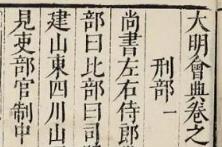 大明會典卷之
刑部一
尚書左右侍郎
部曰比部曰司
建山東四川山
見吏部官制中